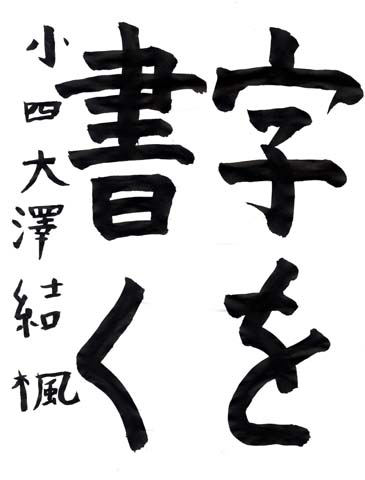 字を
書く
小四大澤結楓